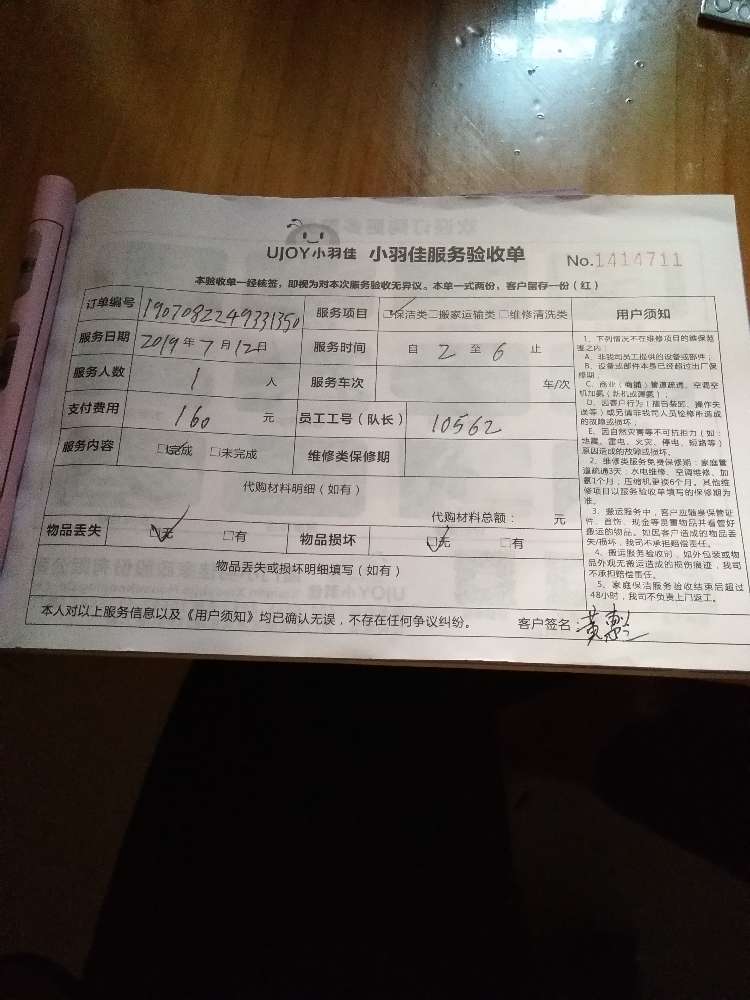 UJOY小羽佳 小羽佳服务验收单 No.1414711
本验收单一经核签，即视为对本次服务验收无异议。本单一式两份，客户留存一份（红）
订单编号 1907082249331350 服务项目 ☑保洁类□搬家运输类□维修清洗类
服务日期 2019年7月12日 服务时间 自 2 至 6 止
服务人数 1 人 服务车次 车/次
支付费用 160 元 员工工号（队长） 10562
服务内容 ☑完成 □未完成 维修类保修期
代购材料明细（如有）
代购材料总额： 元
物品丢失 ☑无 □有 物品损坏 ☑无 □有
物品丢失或损坏明细填写（如有）
本人对以上服务信息以及《用户须知》均已确认无误，不存在任何争议纠纷。 客户签名：黄
用户须知
1、下列情况不在维修项目的维保范
围之内：
A、非我司员工提供的设备或部件；
B、设备或部件本身已经超过出厂保
修期；
C、商业（商铺）管道疏通、空调空
机加氨（新机或漏氨）；
D、因客户行为（擅自装卸、操作失
误等）或另请非我司人员检修所造成
的故障或损坏；
E、因自然灾害等不可抗拒力（如：
地震、雷电、火灾、停电、短路等）
原因造成的故障或损坏。
2、维修类服务免费保修期：家庭管
道疏通3天；水电维修、空调维修、加
氨1个月；压缩机更换6个月。其他维
修项目以服务验收单填写的保修期为
准。
3、搬运服务中，客户应随身保管证
件、首饰、现金等贵重物品并看管好
搬运的物品。如因客户造成的物品丢
失/损坏，我司不承担赔偿责任。
4、搬运服务验收时，如外包装或物
品外观无搬运造成的损伤痕迹，我司
不承担赔偿责任。
5、家庭保洁服务验收结束后超过
48小时，我司不负责上门返工。